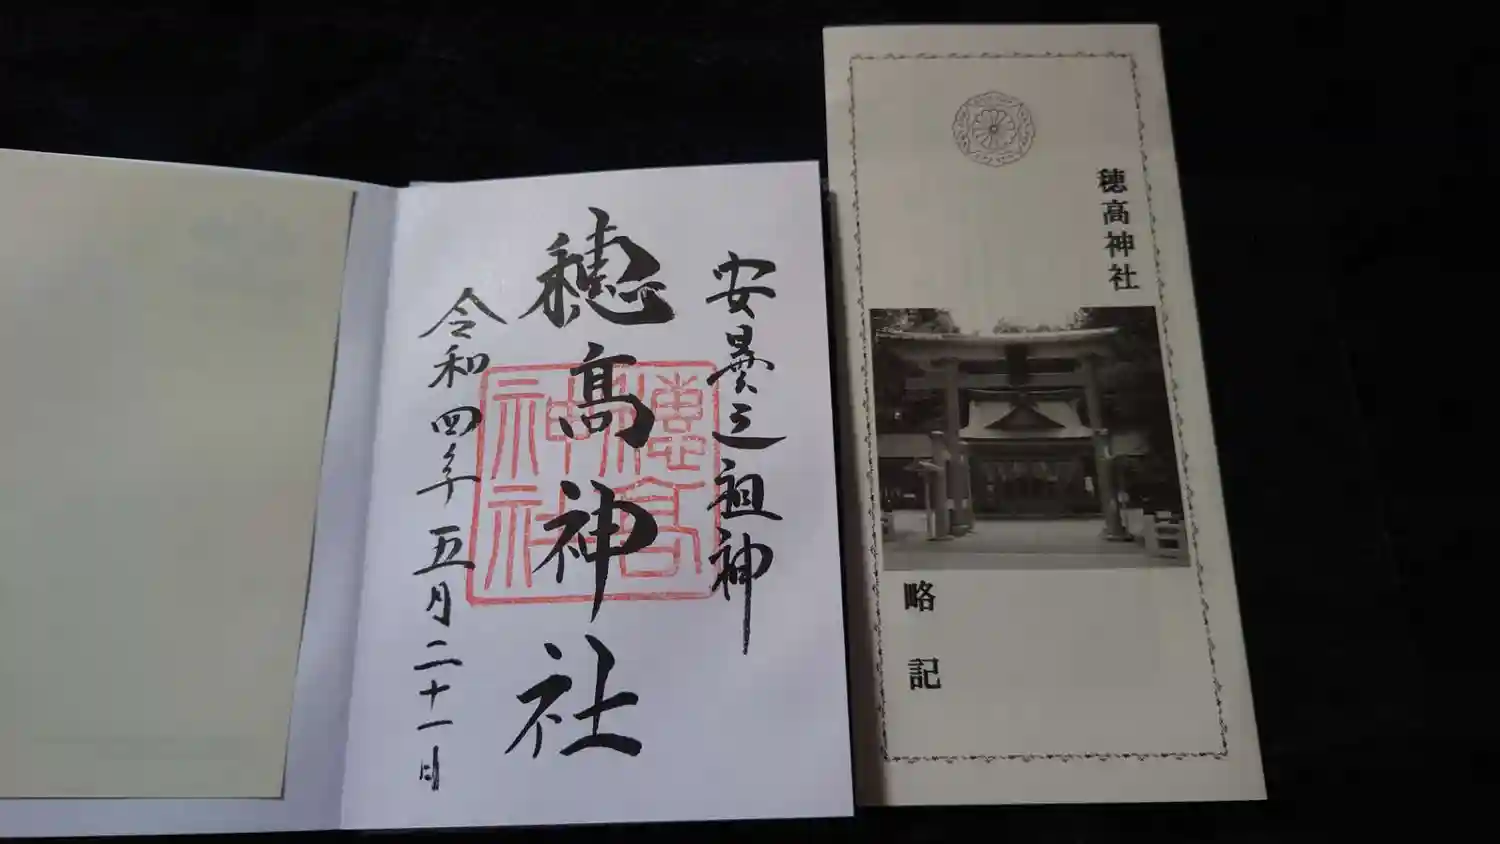 安曇之祖神
穂髙神社
穂高神社
令和四年五月二十一日
穂高神社
略記